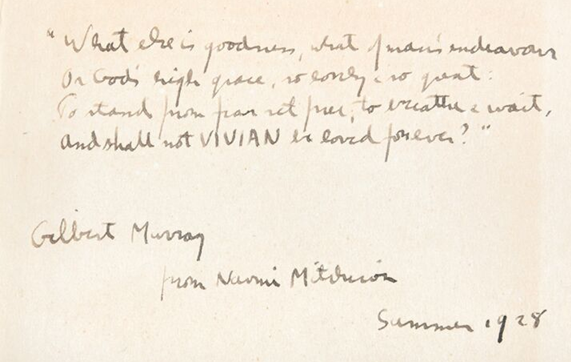 "What else is goodness, what of man's endeavour
Or God's high grace, so lovely & so great:
To stand from fear set free, to breathe & wait,
And shall not VIVIAN be loved forever?"
Gilbert Murray
from Naomi Mitchison
Summer 1928